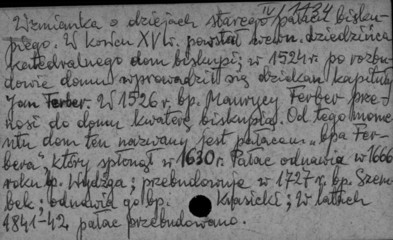 IV/1434
Wzmianka o dziejach starego pałacu bisku-
piego. W końcu XV w. powstał zewn. dziedzińca
katedralnego dom biskupi; w 1524 r. po rozbu-
dowie domu wprowadził się dziekan kapituły
Jan Ferber. W 1526 r. bp. Maurycy Ferber prze-
nosi do domu kwaterę biskupią. Od tego mome-
ntu dom ten nazwany jest pałacem "bpa Fer-
bera", który spłonął w 1630 r. Pałac odnawia w 1666
roku bp. Wydżga; przebudowuje w 1727 r. bp. Szem-
bek; odnawia go bp. Krasicki; W latach
1841-42 pałac przebudowano.